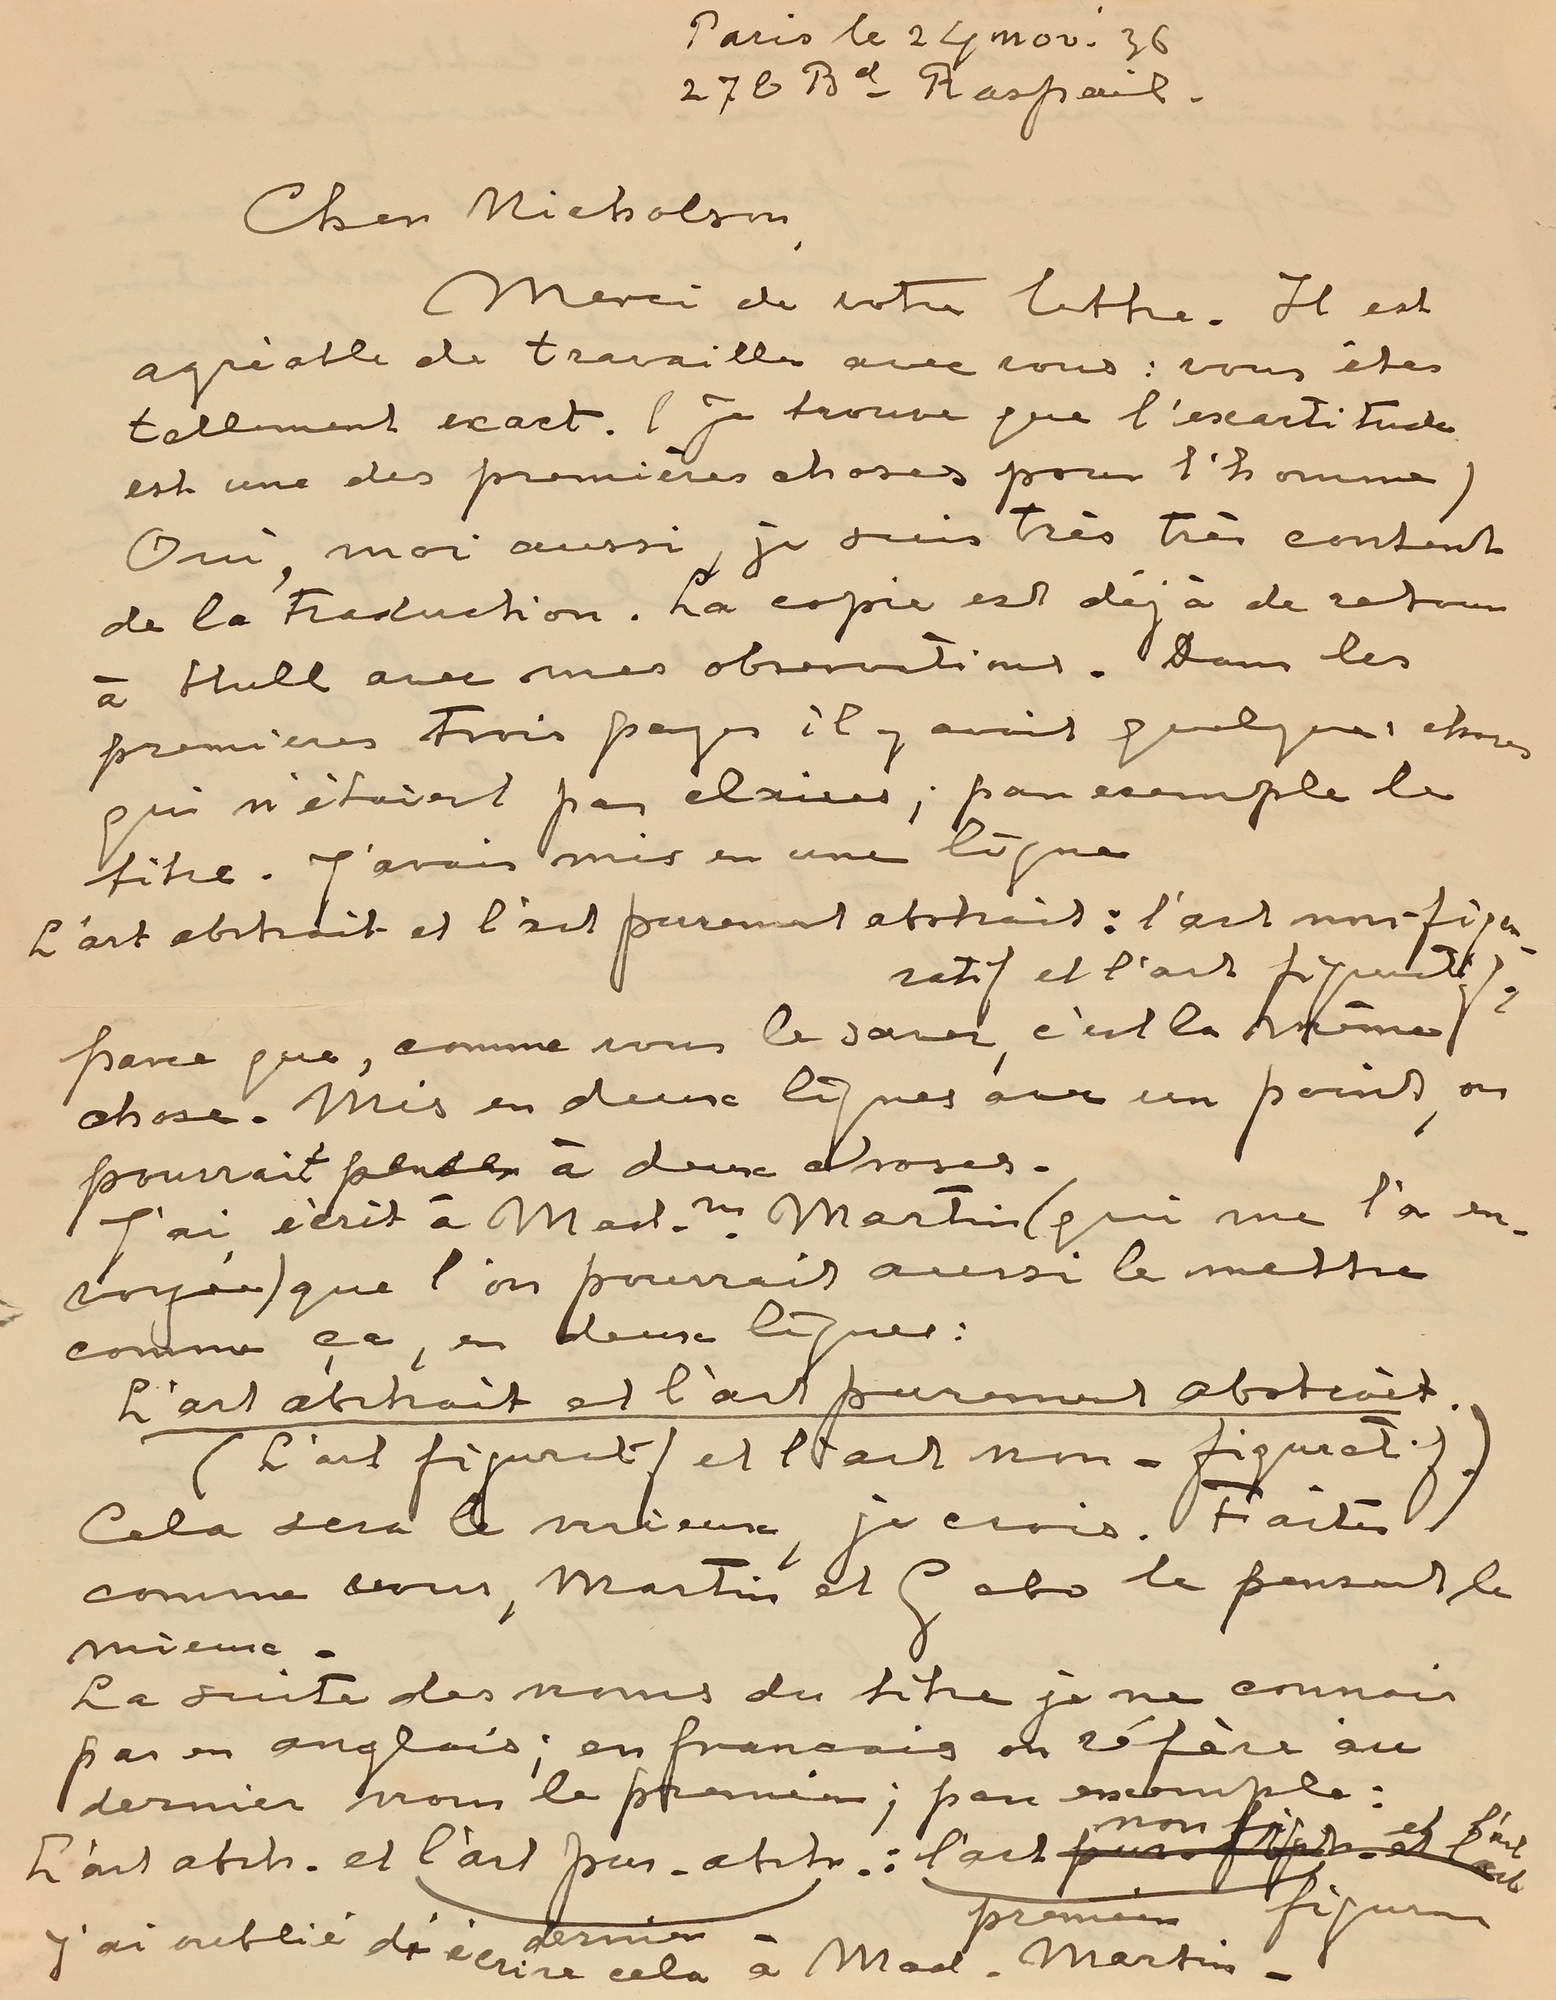 Paris le 24 nov. 36
278 Bd Raspail.
Cher Nicholson,
Merci de votre lettre. Il est
agréable de travailler avec vous : vous êtes
tellement exact. (je trouve que l'exactitude
est une des premières choses pour l'homme)
Oui, moi aussi, je suis très très content
de la traduction. La copie est déjà de retour
à Hull avec mes observations. Dans les
premieres trois pages il y avait quelques choses
qui n'étaient pas claires ; par exemple le
titre. J'avais mis en une ligne
L'art abstrait et l'art purement abstrait : l'art non-figu-
ratif et l'art figuratif,
parce que, comme vous le savez, c'est la même
chose. Mis en deux lignes avec un point, on
pourrait penser à deux choses.
J'ai écrit à Mad.m. Martin (qui me l'a en-
voyée) que l'on pourrait aussi le mettre
comme ça, en deux lignes :
L'art abstrait et l'art purement abstrait.
(L'art figuratif et l'art non-figuratif.)
Cela sera le mieux, je crois. Faites
comme vous, Martin et Gabo le pensent le
mieux.
La suite des noms du titre je ne connais
pas en anglais ; en francais on réfère au
dernier nom le premier ; par exemple :
non fig. et l'art
L'art abstr. et l'art pur. abstr. : l'art
dernier - premier figur
J'ai oublié d'écrire cela à Mad. Martin -